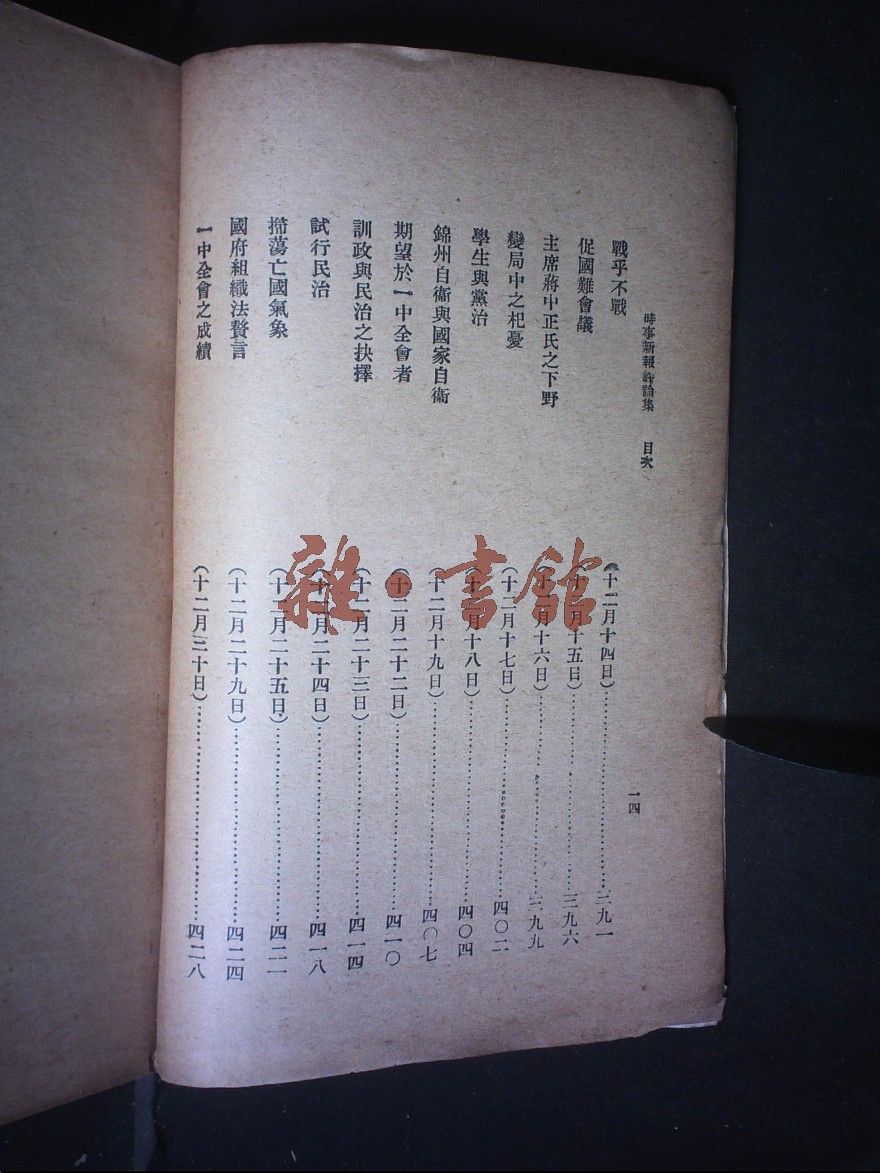 時事新報評論集 目次 一四
戰乎不戰 (十二月十四日) 三九一
促國難會議 (十二月十五日) 三九六
主席蔣中正氏之下野 (十二月十六日) 三九九
變局中之杞憂 (十二月十七日) 四〇二
學生與黨治 (十二月十八日) 四〇四
錦州自衞與國家自衞 (十二月十九日) 四〇七
期望於一中全會者 (十二月二十二日) 四一〇
訓政與民治之抉擇 (十二月二十三日) 四一四
試行民治 (十二月二十四日) 四一八
掃蕩亡國氣象 (十二月二十五日) 四二一
國府組織法贅言 (十二月二十九日) 四二四
一中全會之成績 (十二月三十日) 四二八
雜·書館